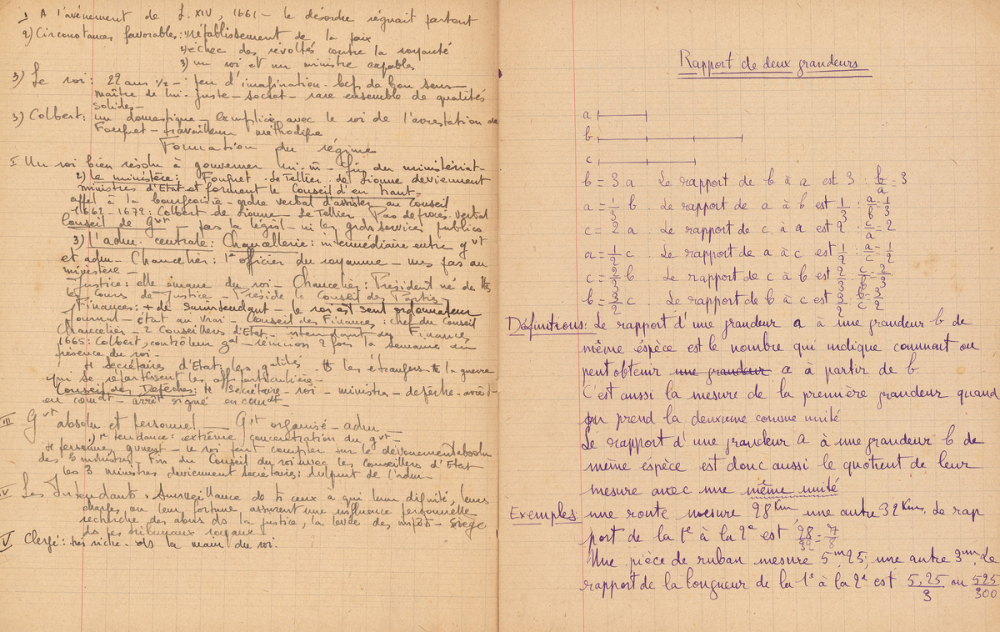 1) A l'avènement de L. XIV, 1661 - le désordre régnait partout
2) Circonstances favorables: 1) rétablissement de la paix
2) échec des révoltes contre la royauté
3) un roi et un ministre capables
3) Le roi: 22 ans ½ - peu d'imagination - bcp de bon sens -
maître de lui - juste - secret - rare ensemble de qualités
solides -
Colbert: un domestique - complice avec le roi de l'arrestation de
Fouquet - travailleur méthodique
Formation du régime
I. Un roi bien résolu à gouverner lui-m - fin du ministériat -
2) le ministère: Fouquet - Le Tellier - de Lionne deviennent
ministres d'Etat et forment le Conseil d'en haut -
appel à la bourgeoisie - ordre verbal d'assister au Conseil
1662-1672: Colbert de Lionne - Le Tellier Pas de procès-verbal
Conseil de Gvt - pas la législ - ni les grds services publics
3) L'adm. centrale: Chancellerie: intermédiaire entre gvt
et adm - Chancelier: 1er officier du royaume - mais pas au
ministère -
Justice: elle émane du roi - Chancelier: Président né de ttes
les Cours de justice - Préside le Conseil des Parties
Finances: + de surintendant - le roi est seul ordonnateur
Conseil des Finances: chef du Conseil
Chancelier - 2 Conseillers d'Etat Finances,
1665: Colbert, contrôleur gal - réunion 2 fois la semaine en
présence du roi -
4 Secrétaires d'Etat les étrangers la guerre
qui se répartissent les aff. particulières -
Conseil des Dépêches: 4 Secrétaires - roi - ministres - dépêche - arrêt -
en comdt - arrêt signé en comdt
III Gvt absolu et personnel - Gvt organisé - adm -
1re tendance: extrême concentration du gvt -
4 personnes gouvernt - le roi peut compter sur le dévouement absolu
des 3 ministres - Fin du Conseil du roi avec les conseillers d'Etat
les 3 ministres deviennent secrétaires d'Etat
IV Les Intendants. Surveillance de ts ceux à qui leur dignité, leurs
charges ou leur fortune assurent une influence personnelle
recherche des abus ds la justice, la levée des impôts - siège
ds les tribunaux royaux -
V Clergé: très riche - ds la main du roi -
Rapport de deux grandeurs
a
b
c
b = 3 a Le rapport de b à a est 3 b/a = 3
a = 1/3 b Le rapport de a à b est 1/3 : a/b = 1/3
c = 2 a Le rapport de c à a est 2 c/a = 2
a = 1/2 c Le rapport de a à c est 1/2 a/c = 1/2
c = 2/3 b Le rapport de c à b est 2/3 c/b = 2/3
b = 3/2 c Le rapport de b à c est 3/2 b/c = 3/2
Définitions: Le rapport d'une grandeur a à une grandeur b de
même éspèce est le nombre qui indique comment on
peut obtenir une grandeur a à partir de b
C'est aussi la mesure de la première grandeur quand
on prend la deuxième comme unité
Le rapport d'une grandeur a à une grandeur b de
même éspèce est donc aussi le quotient de leur
mesure avec une même unité
Exemples une route mesure 28 Km, une autre 32 Km. Le rap
port de la 1e à la 2e est 28/32 = 7/8
Une pièce de ruban mesure 5m25, une autre 3m. Le
rapport de la longueur de la 1e à la 2e est 5,25/3 ou 525/300